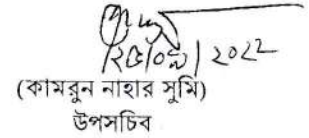 ২৫/০৯/২০২২
(কামরুন নাহার সুমি)
উপসচিব